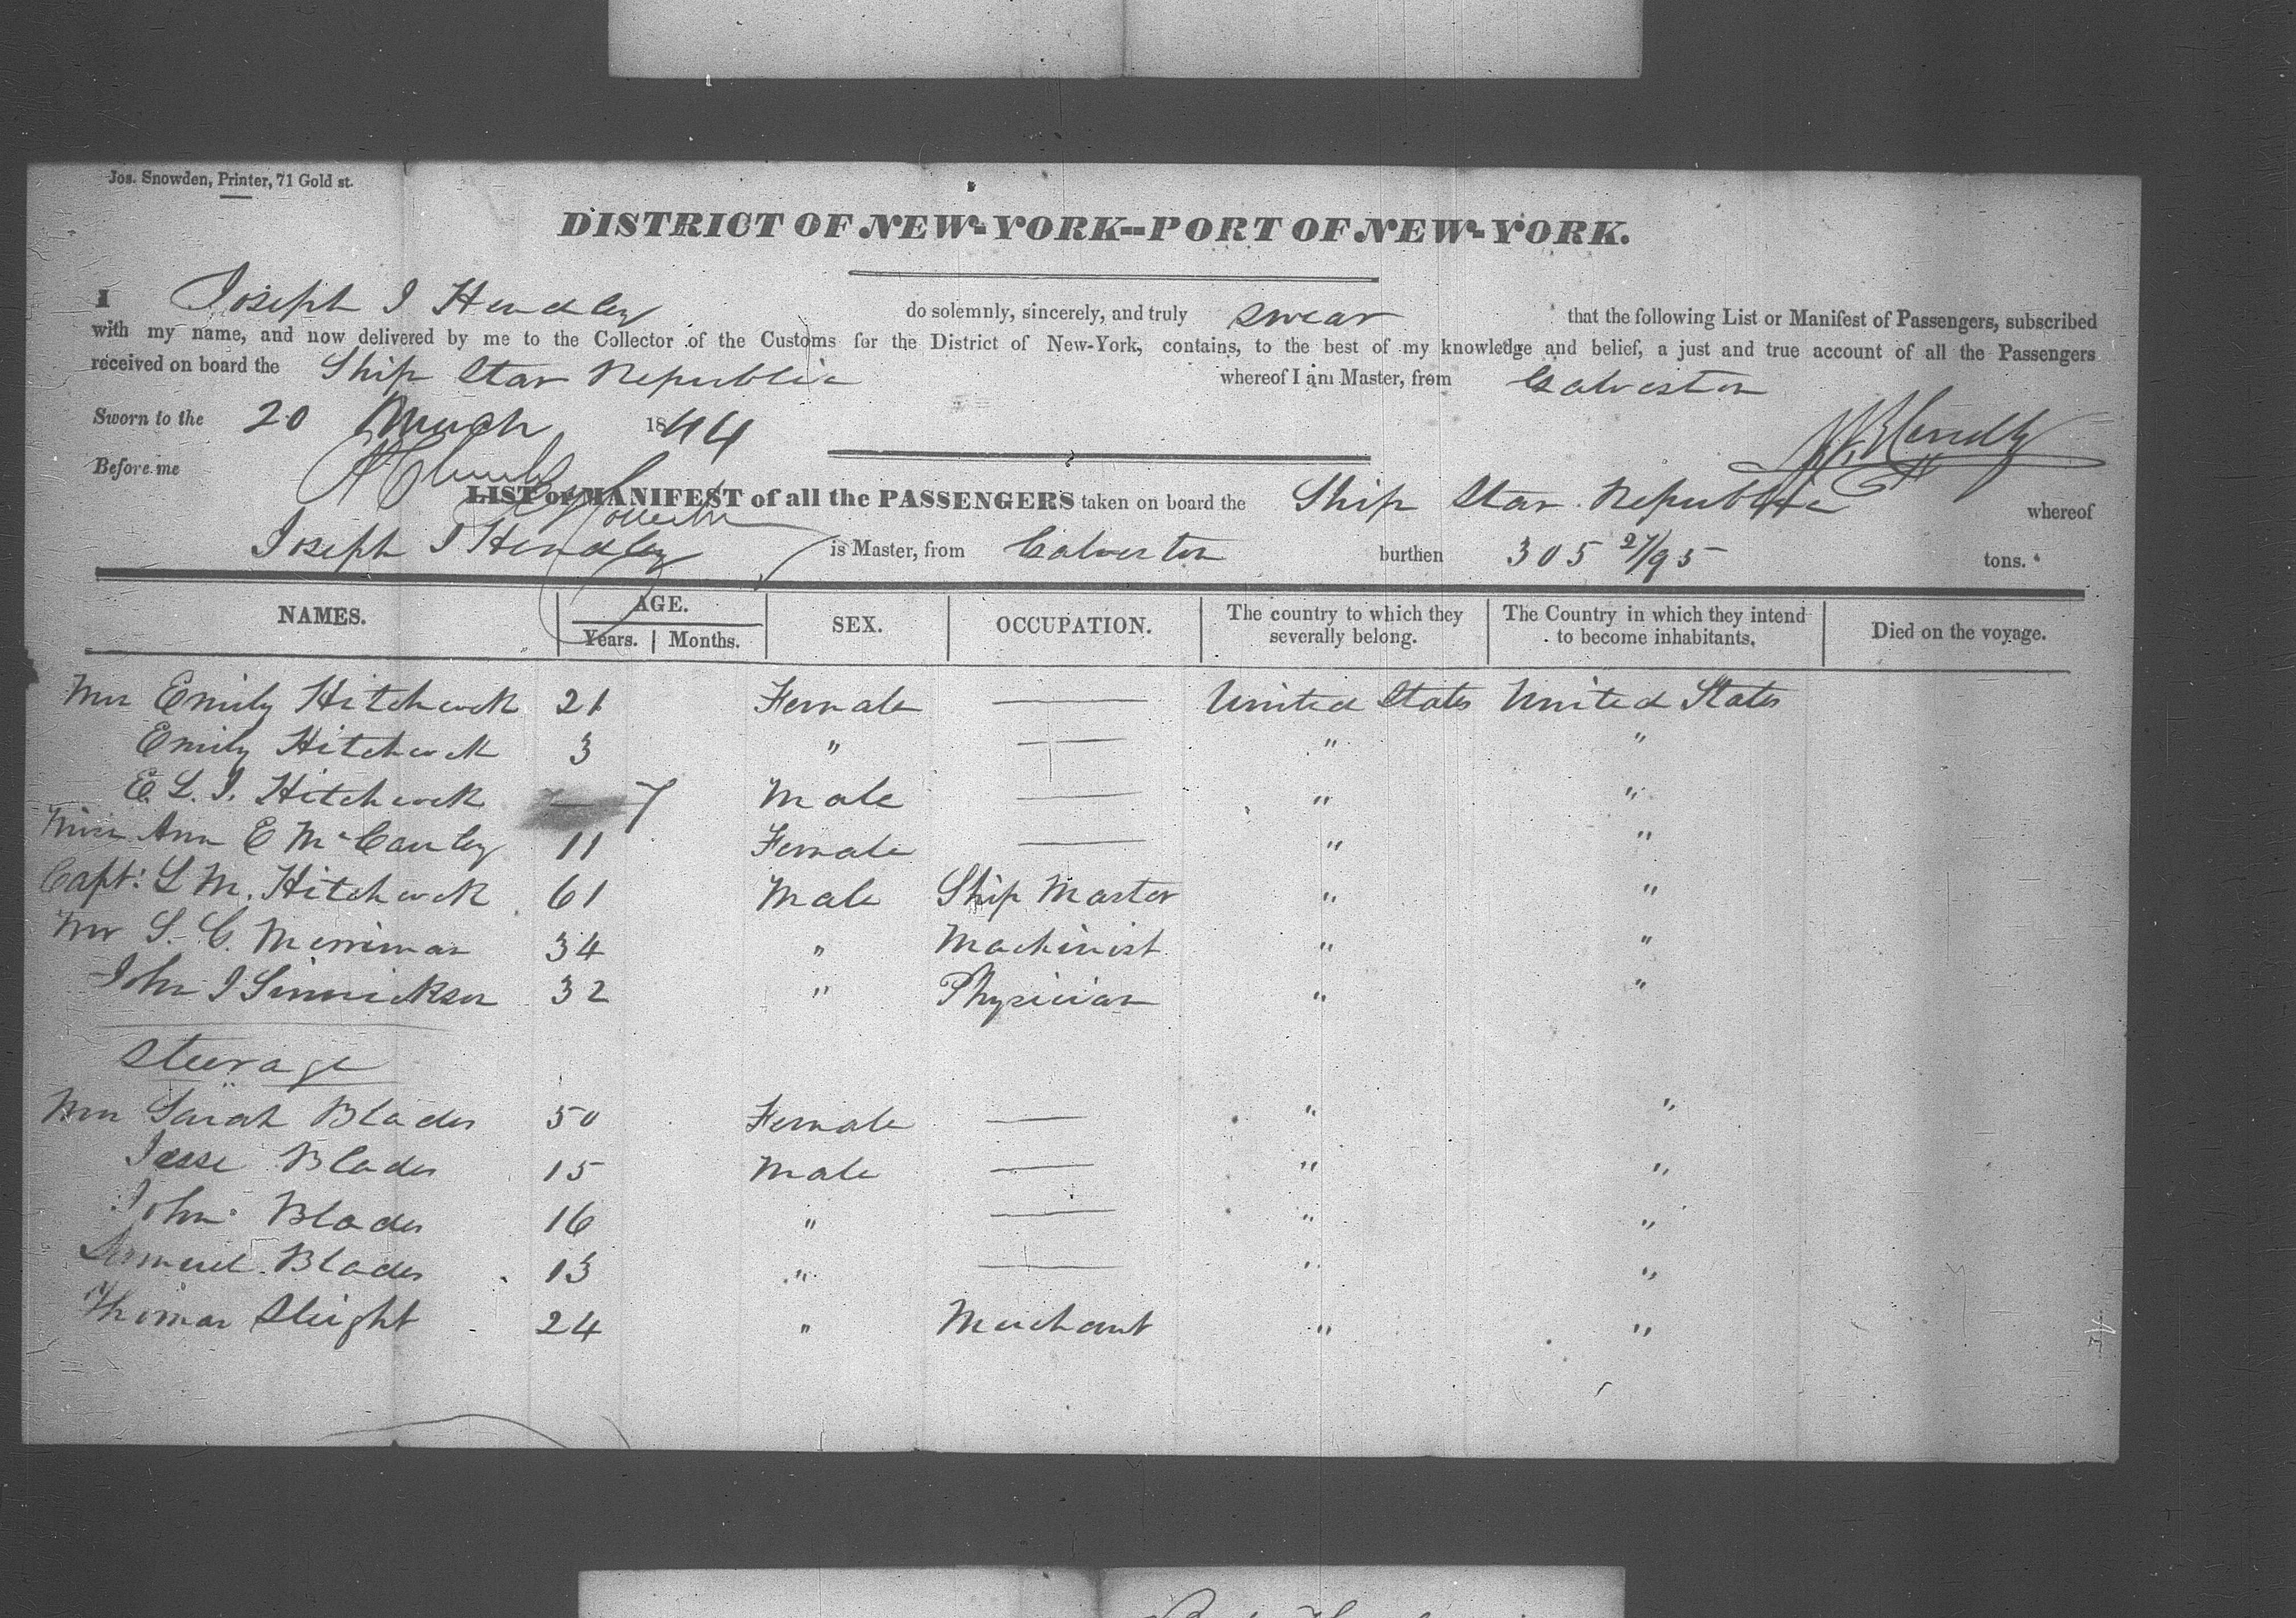 Jos. Snowden, Printer, 71 Gold st.
DISTRICT OF NEW-YORK--PORT OF NEW-YORK.
I Joseph J Hendley do solemnly, sincerely, and truly swear that the following List or Manifest of Passengers, subscribed
with my name, and now delivered by me to the Collector of the Customs for the District of New-York, contains, to the best of my knowledge and belief, a just and true account of all the Passengers
received on board the Ship Star Republic whereof I am Master, from Galveston
Sworn to the 20 March 1844
Before me
LIST or MANIFEST of all the PASSENGERS taken on board the Ship Star Republic whereof
Joseph J Hendley is Master, from Galveston burthen 305 27/95 tons.
NAMES. AGE. SEX. OCCUPATION. The country to which they severally belong. The Country in which they intend to become inhabitants. Died on the voyage.
Years. Months.
Mrs Emily Hitchcock 21 Female — United States United States
Emily Hitchcock 3 " — " "
E. L. J. Hitchcock 7 Male — " "
Miss Ann E McCauley 11 Female — " "
Capt: L M. Hitchcock 61 Male Ship Master " "
Mr S. C. Merriman 34 " Machinist " "
John J Sinnickson 32 " Physician " "
Steerage
Mrs Sarah Blades 50 Female — " "
Jesse Blades 15 Male — " "
John Blades 16 " — " "
Samuel Blades 13 " — " "
Thomas Sleight 24 " Merchant " "